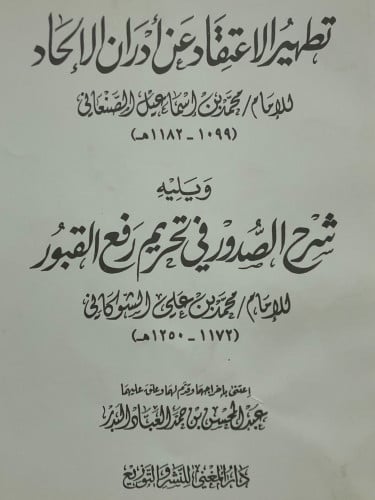 تطهير الاعتقاد عن أدران الإلحاد
للإمام/محمد بن اسماعيل الصنعاني
(١٠٩٩ - ١١٨٢هـ)
ويليه
شرح الصدور في تحريم رفع القبور
للإمام/محمد بن علي الشوكاني
(١١٧٢ - ١٢٥٠هـ)
اعتنى بإخراجهما وقدم لهما وعلق عليهما
عبد المحسن بن حمد العباد البدر
دار المغني للنشر والتوزيع